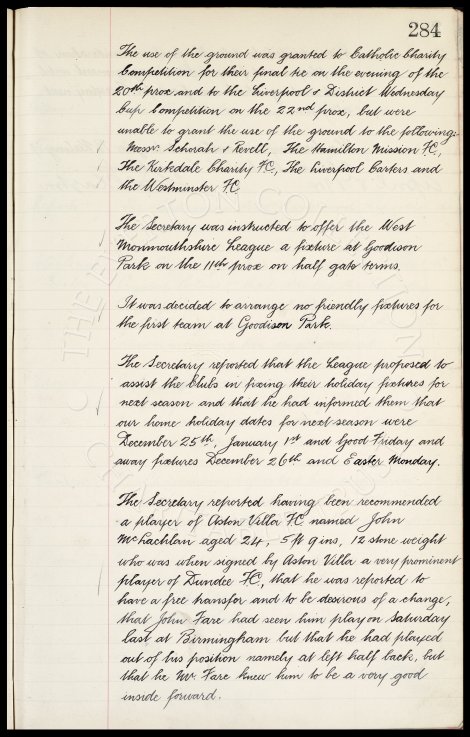 284
The use of the ground was granted to Catholic Charity
Competition for their final tie on the evening of the
20th prox and to the Liverpool & District Wednesday
Cup Competition on the 22nd prox, but were
unable to grant the use of the ground to the following:
Messrs. Schorah & Revell, The Hamilton Mission FC,
The Kirkdale Charity FC, The Liverpool Carters and
the Westminster FC
The Secretary was instructed to offer the West
Monmouthshire League a fixture at Goodison
Park on the 11th prox on half gate terms.
It was decided to arrange no friendly fixtures for
the first team at Goodison Park.
The Secretary reported that the League proposed to
assist the Clubs in fixing their holiday fixtures for
next season and that he had informed them that
our home holiday dates for next season were
December 25th, January 1st and Good Friday and
away fixtures December 26th and Easter Monday.
The Secretary reported having been recommended
a player of Aston Villa FC named John
McLachlan aged 24, 5 ft 9 ins, 12 stone weight
who was when signed by Aston Villa a very prominent
player of Dundee FC, that he was reported to
have a free transfer and to be desirous of a change,
that John Fare had seen him play on Saturday
last at Birmingham but that he had played
out of his position namely at left half back, but
that he Mr. Fare knew him to be a very good
inside forward.